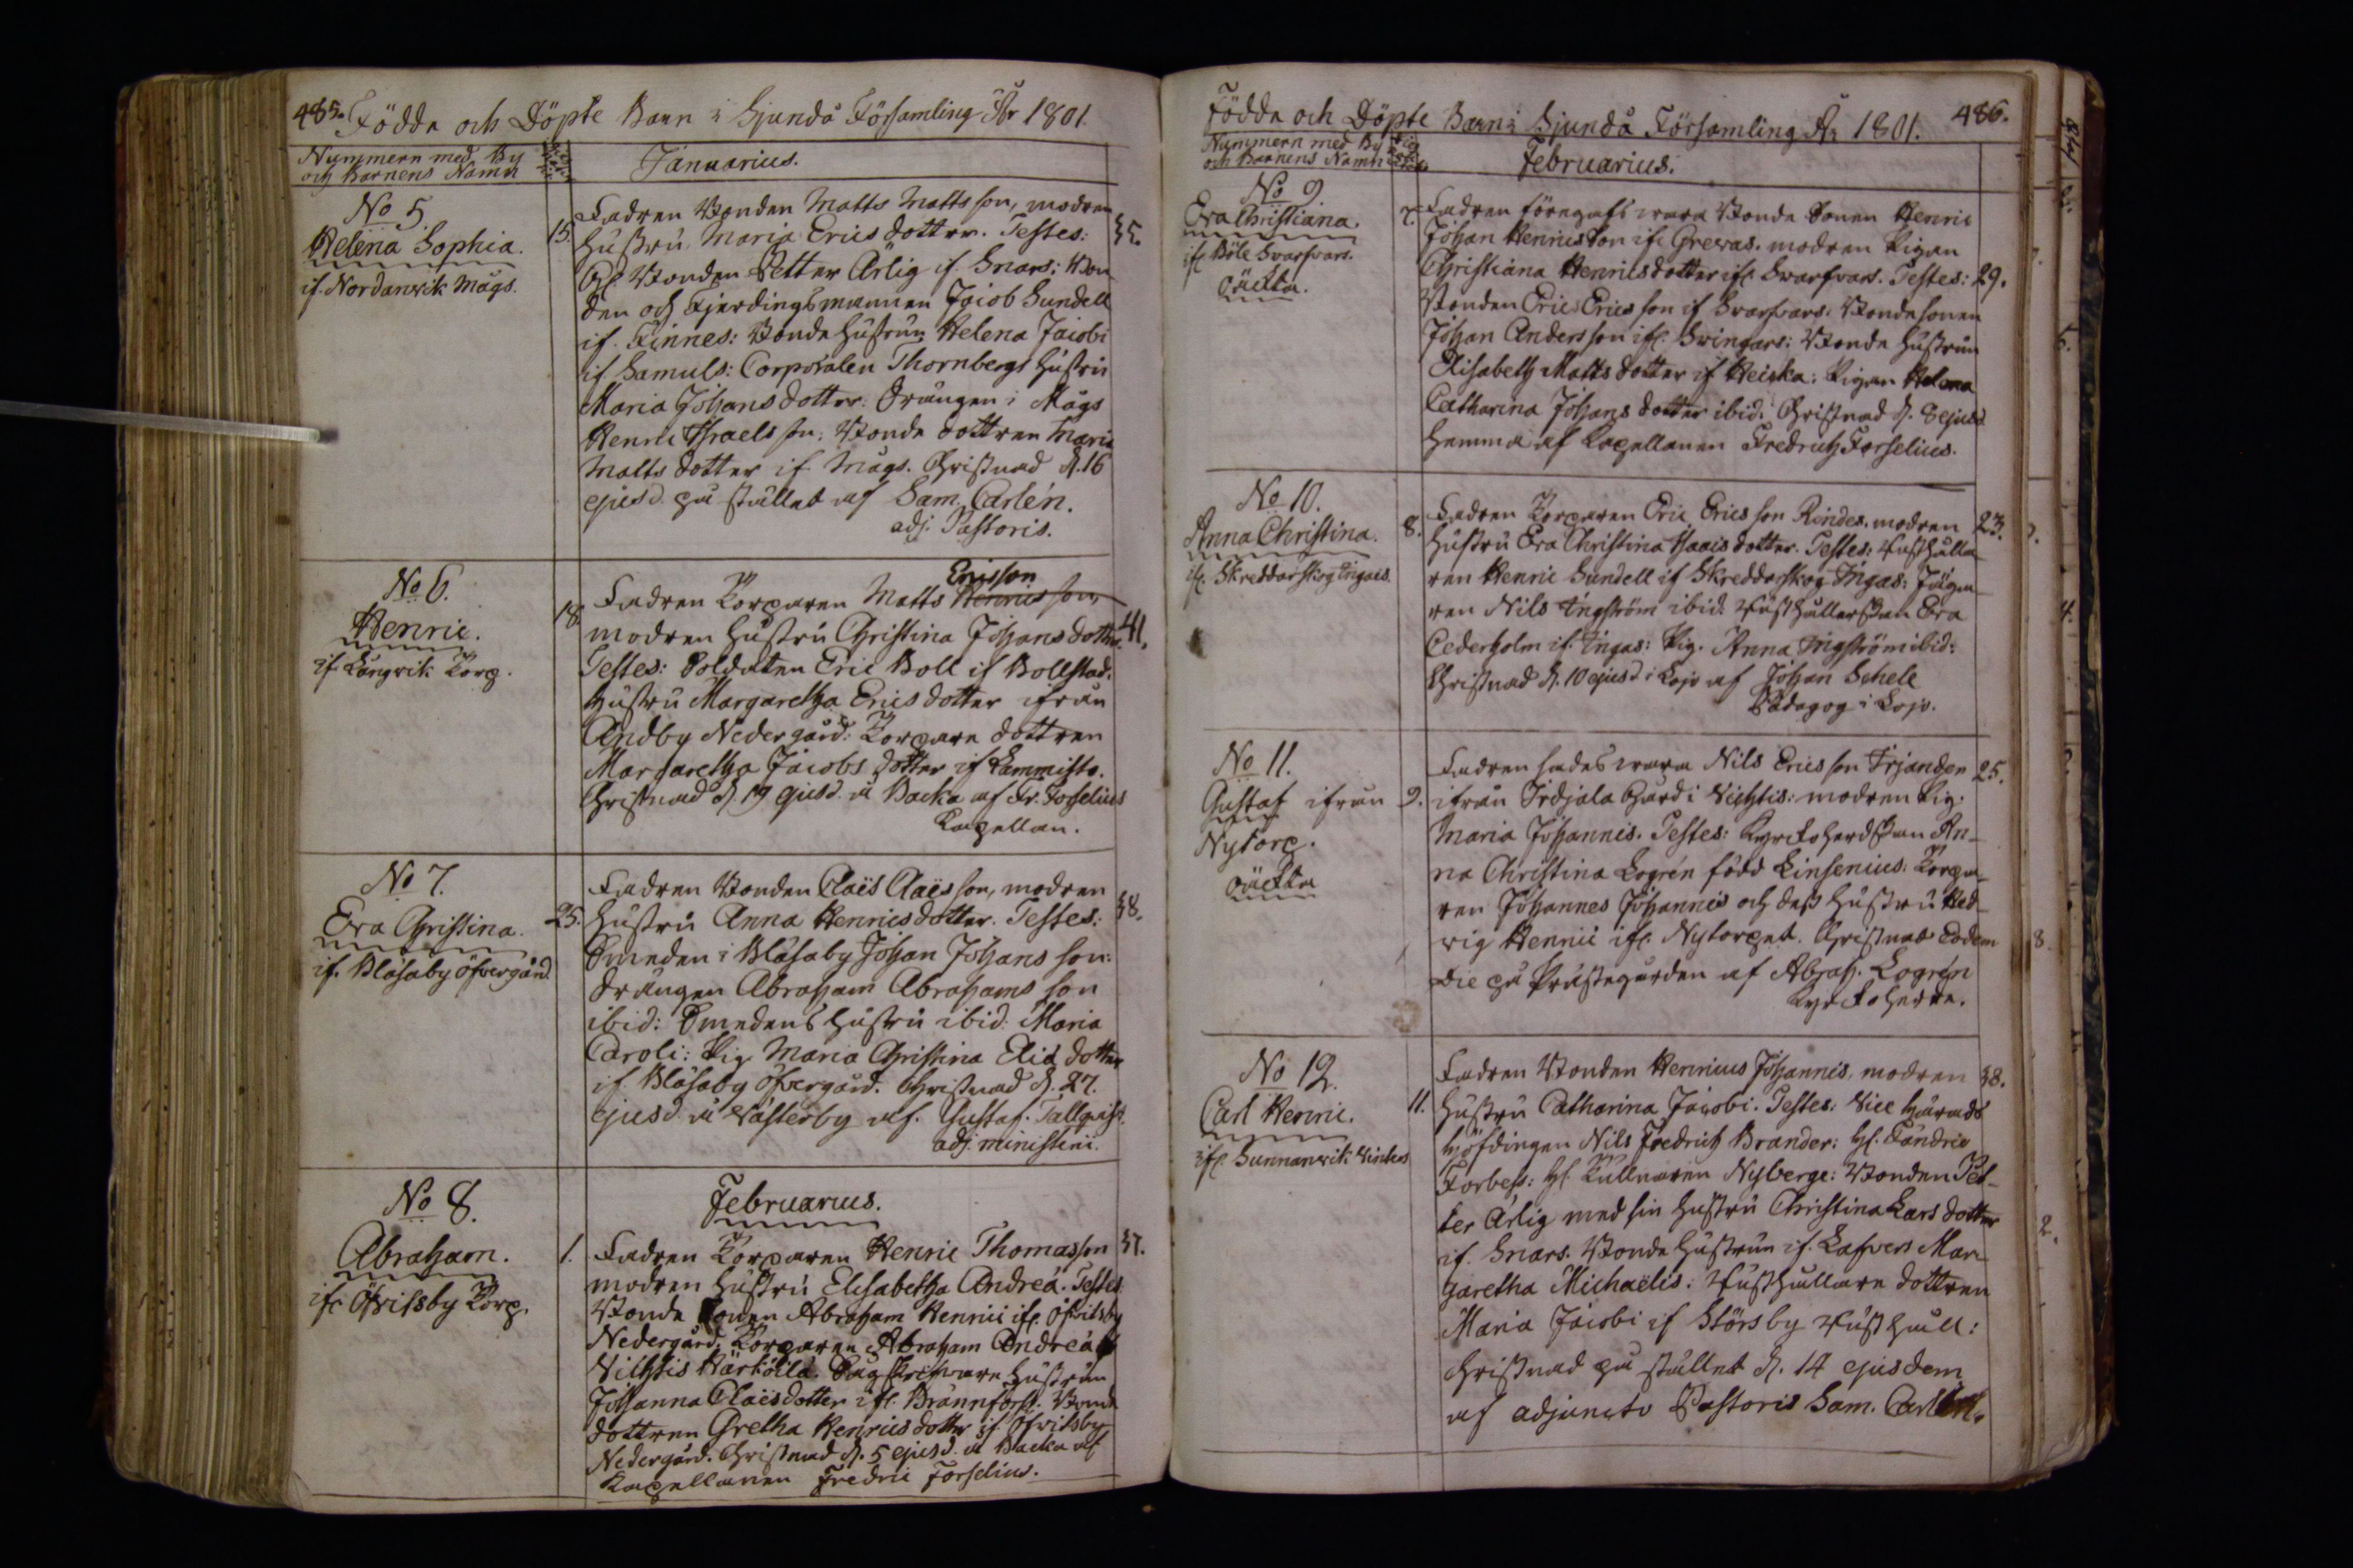 485. Födde och Döpte Barn i Sjundå Församling År 1801.
Nummern med By
och Barnens Namn
Januarius.
No 5.
Helena Sophia.
if. Nordanvik Mågs.
15.
Fadren Bonden Matts Mattsson, modren
35.
Hustru Maria Erics dotter. Testes:
Bonden Petter Arlig if. Snars; Bon
den och Fjerdingsmannen Jacob Sundell
if. Finnes: Bonde Hustrun Helena Jacobi
if Samuls: Corporalen Thornbergs Hustru
Maria Johans dotter. Drängen i Mågs
Henric Israels son; Bonde dottren Maria
Matts dotter if. Mågs. Christnad d. 16
ejusd. på stället af Sam. Carlén.
adj. Pastoris.
No 6.
Henric.
if Långvik Torp.
18.
Ericsson
Fadren Torparen Matts Henrics son,
modren Hustru Christina Johans dotter.
41.
Testes: Soldaten Eric Boll if Bollstad.
Hustru Margaretha Erics dotter ifrån
Andby Nedergård: Torpare dottren
Margaretha Jacobs dotter if Lammisto.
Christnad d. 19 ejusd. i Backa af Fr. Forselius
Kapellan.
No 7.
Eva Christina.
if. Blåsaby öfvergård.
25.
Fadren Bonden Claës Claës son, modren
38.
Hustru Anna Henricsdotter. Testes:
Smeden i Blåsaby Johan Johans son:
Drängen Abraham Abrahams son
ibid: Smedens Hustru ibid. Maria
Caroli: Pig. Maria Christina Eliæ dotter
if Blåsaby öfvergård. Christnad d. 27.
ejusd. i Västerby af. Gustaf. Tallqvist.
adj. ministerii.
Februarius.
No 8.
Abraham.
ifr Öfvitsby Torp.
1.
Fadren Torparen Henric Thomasson
37.
modren Hustru Elisabetha Andreæ. Testes
Bonde Sonen Abraham Henrici ifr. Öfvitsby
Nedergård, Torparen Abraham Andreæ if
Vichtis Härköilä. Sågskrifvare Hustrun
Johanna Claësdotter ifr. Brännforss. Bonde
dottren Gretha Henricsdotter if. Öfvitsby
Nedergård. Christnad d. 5 ejusd. i Backa af
Kapellanen Fredric Forselius.
Födde och Döpte Barn i Sjundå Församling År 1801. 486.
Nummern med By
och Barnens Namn
Februarius.
No 9.
Eva Christiana.
ifr Böle Svarfvars.
oäckta.
7.
Fadren föregafs vara Bonde Sonen Henric
Johan Henricsson ifr Grevas. modren Pigan
Christiana Henricsdotter ifr Svarfvars. Testes:
29.
Bonden Eric Erics son if Svarfvars: Bondesonen
Johan Andersson ifr. Svingars: Bonde Hustrun
Elisabeth Matts dotter if Heicka: Pigan Helena
Catharina Johans dotter ibid. Christnad d. 8 ejusd
Hemma af Kapellanen Fredrich Forselius.
No 10.
Anna Christina.
ifr. Skreddarskog Ingas.
8.
Fadren Torparen Eric Erics son Rindes. modren
23.
Hustru Eva Christina Isaacs dotter. Testes: Rusthålla
ren Henric Sundell if Skreddarskog Ingas: Jäga
ren Nils Ingström ibid. Rusthållerskan Eva
Cederholm if. Ingas: Pig. Anna Ingström ibid:
Christnad d. 10 ejusd i Lojo af Johan Schele
Pædagog i Lojo.
No 11.
Gustaf ifrån
Nytorp.
oäckta
9.
Fadren sades vara Nils Erics son Irjander
25.
ifrån Irdjala Gård i Vichtis: modren Pig.
Maria Johannis. Testes: Kyrckoherdskan An-
na Christina Logrén född Linsenius: Torpa-
ren Johannes Johannis och dess Hustru Hed-
vig Henrici ifr. Nytorpet. Christnad Eodem
Die på Prästegården af Abrah. Logrén
Kyrckoherre.
No 12.
Carl Henric.
ifr. Sunnanvik
11.
Fadren Bonden Henricus Johannis, modren
38.
Hustru Catharina Jacobi. Testes: Vice Härads
Höfdingen Nils Fredrich Brander: H. Fändric
Forbess: H. Tullnären Nyberge: Bonden Pet-
ter Arlig med sin Hustru Christina Lars dotter
if. Snars. Bonde Hustrun if. Lafvers Mar-
garetha Michaëlis: Rusthållare dottren
Maria Jacobi if Störsby Rusthåll:
Christnad på stället d. 14 ejusdem
af adjuncto Pastoris Sam. Carlén.